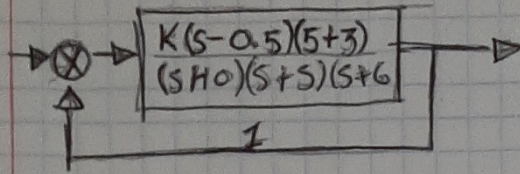 K(s-0.5)(s+3)
(s+10)(s+5)(s+6
1